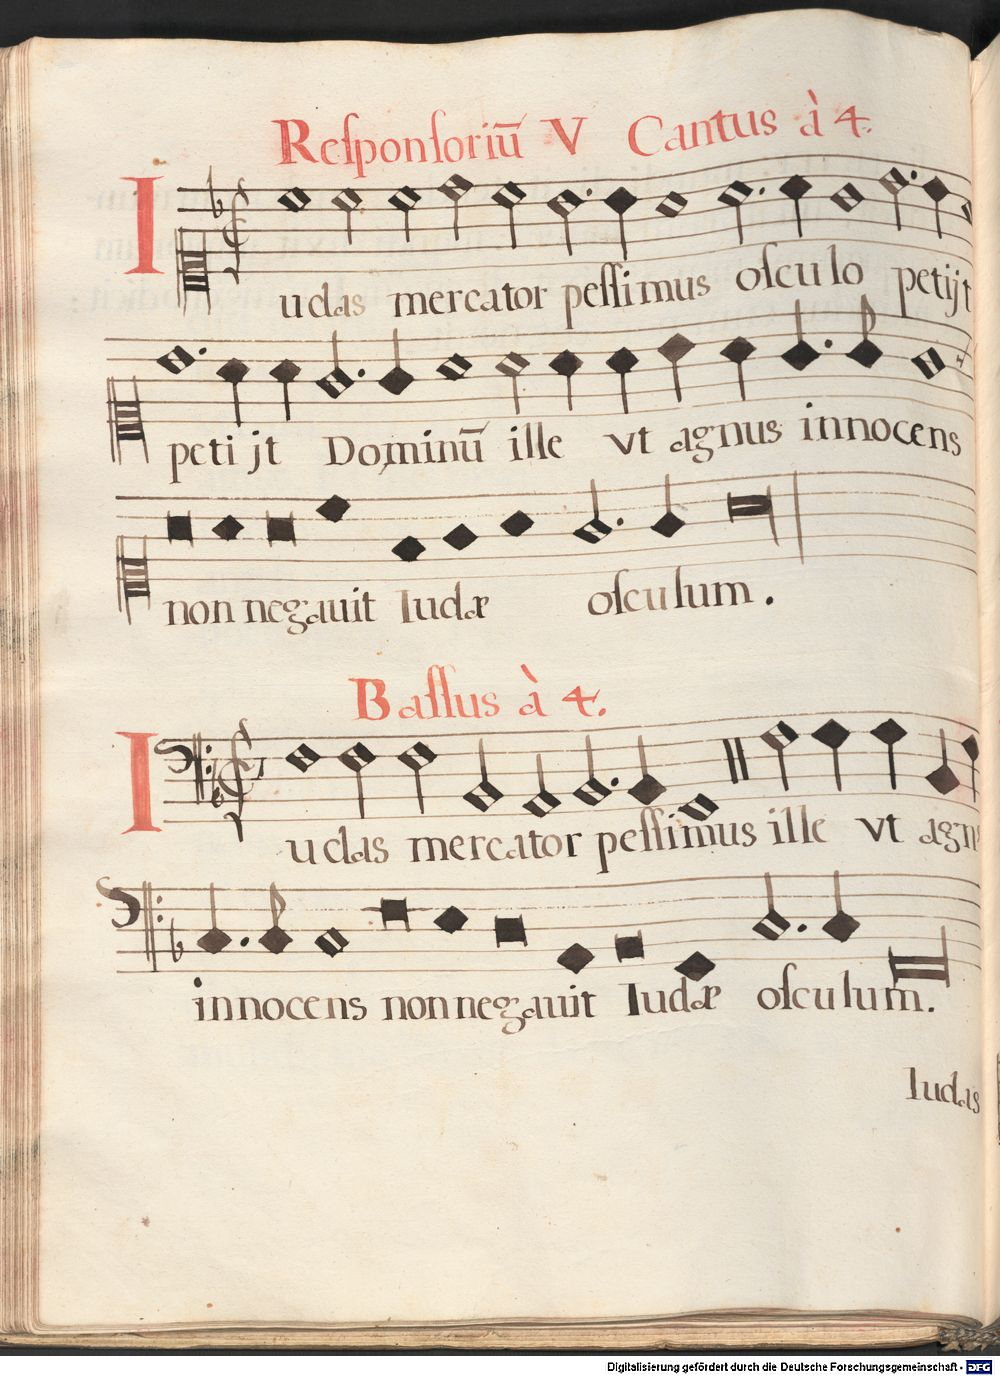 Reſponſoriū V Cantus à 4.
Iudas mercator peſſimus oſculo petijt
petijt Dominū ille vt agnus innocens
non negauit Iudæ oſculum.
Baſſus à 4.
Iudas mercator peſſimus ille vt agn
innocens non negauit Iudæ oſculum.
Iudas
Digitalisierung gefördert durch die Deutsche Forschungsgemeinschaft - DFG